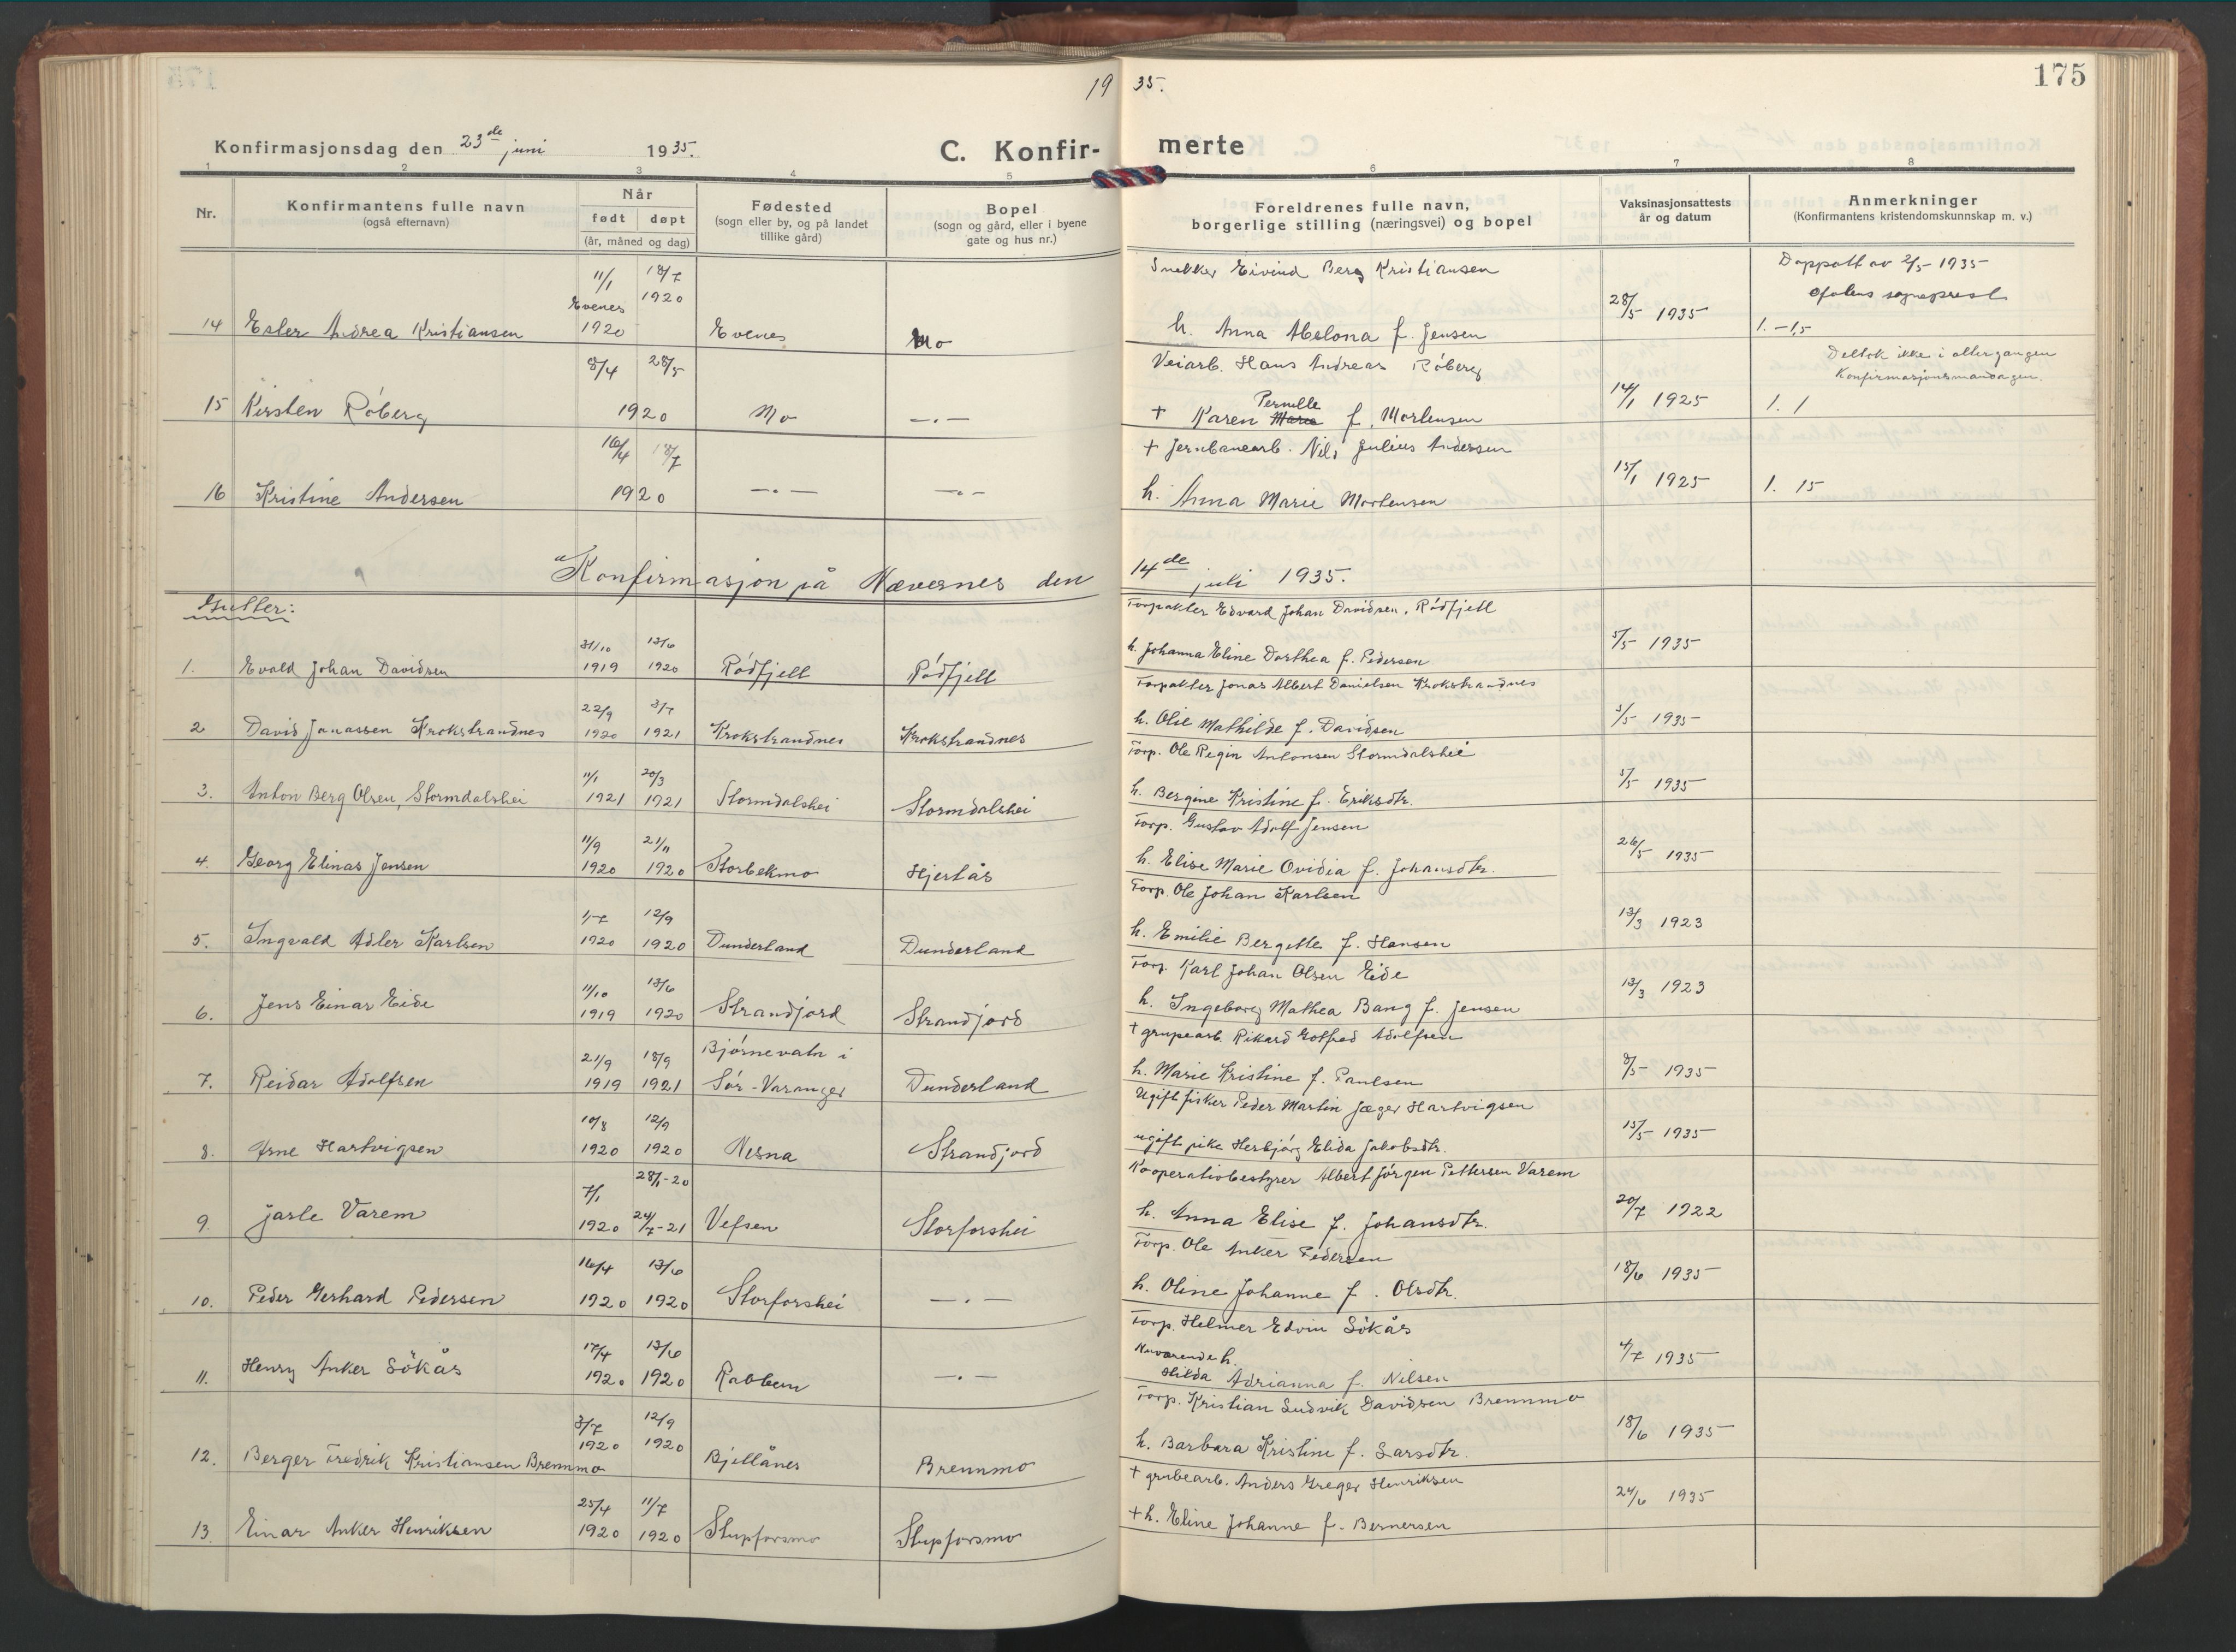 19 35.
175
Konfirmasjonsdag den 23de juni 1935.
C. Konfir- merte
1 2 3 4 5 6 7 8
Nr.
Konfirmantens fulle navn
(også efternavn)
Når
født døpt
(år, måned og dag)
Fødested
(sogn eller by, og på landet
tillike gård)
Bopel
(sogn og gård, eller i byene
gate og hus nr.)
Foreldrenes fulle navn,
borgerlige stilling (næringsvei) og bopel
Vaksinasjonsattests
år og datum
Anmerkninger
(Konfirmantens kristendomskunnskap m. v.)
11/1 18/7 Snekker Eivind Berg Kristiansen Døpatt av 2/5-1935
Evenes 1920 28/5 1935 Ofotens sogneprest
14 Ester Andrea Kristiansen 1920 Evenes Mo h. Anna Abelona f. Jensen 1.-1,5
8/4 28/5 Veiarb. Hans Andreas Røberg Deltok ikke i altergangen
Konfirmasjonsmandagen.
Pernille
15 Kirsten Røberg 1920 Mo —.— + Karen Marie f. Mortensen 14/1 1925 1. 1
16/4 18/7 + Jernbanearb. Nils Julius Andersen
16 Kristine Andersen 1920 —.— —.— h. Anna Marie Mortensen 15/1 1925 1. 15
Konfirmasjon på Nævernes den 14de juli 1935.
Gutter:
31/10 13/6 Forpakter Edvard Johan Davidsen, Rødfjell
1. Evald Johan Davidsen 1919 1920 Rødfjell Rødfjell h. Johanna Eline Dorthea f. Pedersen 5/5 1935
22/9 3/7 Forpakter Jonas Albert Danielsen Krokstrandnes
2 David Jonassen Krokstrandnes 1920 1921 Krokstrandnes Krokstrandnes h. Olie Mathilde f. Davidsen 5/5 1935
11/1 20/3 Forp. Ole Regin Antonsen Stormdalshei
3. Anton Berg Olsen, Stormdalshei 1921 1921 Stormdalshei Stormdalshei h. Bergine Kristine f. Eriksdtr. 5/5 1935
11/9 21/11 Forp. Gustav Adolf Jensen
4. Georg Elinas Jensen 1920 1920 Storbekmo Hjertås h. Elise Marie Ovidia f. Johansdtr. 26/5 1935
1/7 12/9 Forp. Ole Johan Karlsen
5. Ingvald Adler Karlsen 1920 1920 Dunderland Dunderland h. Emilie Bergette f. Hansen 13/3 1923
11/10 13/6 Forp. Karl Johan Olsen Eide
6. Jens Einar Eide 1919 1920 Strandjord Strandjord h. Ingeborg Mathea Bang f. Jensen 13/3 1923
21/9 18/9 Bjørnevatn i + grupearb. Rikard Gotfred Adolfsen
7. Reidar Adolfsen 1919 1921 Sør-Varanger Dunderland h. Marie Kristine f. Paulsen 8/5 1935
10/8 12/9 Ugift fisker Peder Martin Jæger Hartvigsen
8. Arne Hartvigsen 1920 1920 Nesna Strandjord ugift pike Herbjørg Elida Jakobsdtr. 15/5 1935
7/1 28/1-20 Kooperativbestyrer Albert Jørgen Pettersen Varem
9. Jarle Varem 1920 24/7-21 Vefsen Storforshei h. Anna Elise f. Johansdtr. 20/7 1922
16/4 13/6 Forp. Ole Anker Pedersen
10. Peder Gerhard Pedersen 1920 1920 Storforshei —.— h. Oline Johanne f. Olsdtr. 18/6 1935
17/4 13/6 Forp. Helmer Edvin Søkås
Nuværende h.
11. Henry Anker Søkås 1920 1920 Rabben —.— Hilda Adrianna f. Nilsen 4/7 1935
3/7 12/9 Forp. Kristian Ludvik Davidsen Brennmo
1920 1920
12. Berger Fredrik Kristiansen Brennmo Bjellånes Brennmo h. Barbara Kristine f. Larsdtr. 18/6 1935
25/4 11/7 + grubearb. Anders Greger Henriksen
13. Einar Anker Henriksen 1920 1920 Stupforsmo Stupforsmo + h. Eline Johanne f. Bernersen 24/6 1935